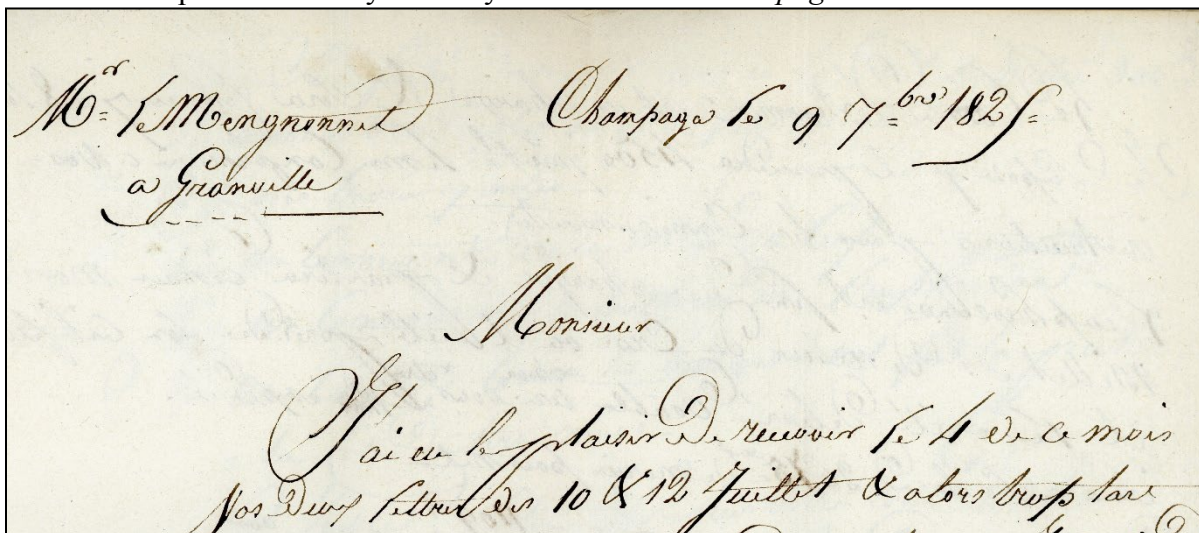 Mr. le Mengnonnet Champaga le 9 7bre 1825
a Granville
Monsieur
J'ai eu le plaisir de recevoir le 4 de ce mois
Vos deux lettres des 10 & 12 Juillet & alors trop tard